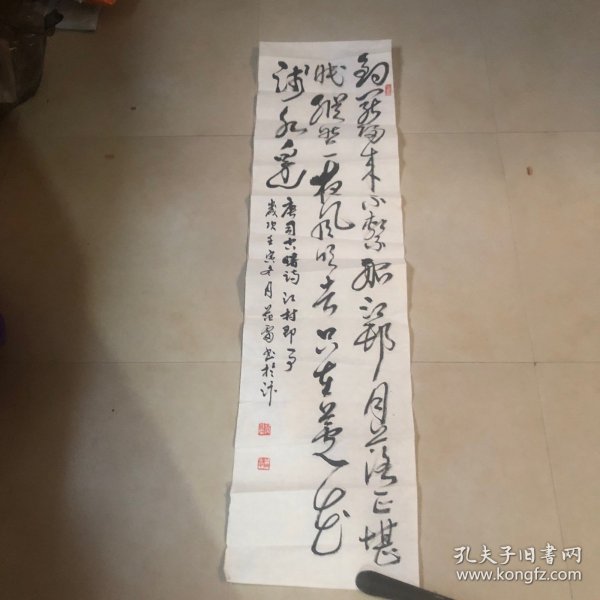 钓罢归来不系船江邨月落正堪
眠纵然一夜风吹去只在芦花
浅水边
唐司空曙诗江村即事
岁次壬寅 月 书于汴
孔夫子旧书网
www.kongfz.com